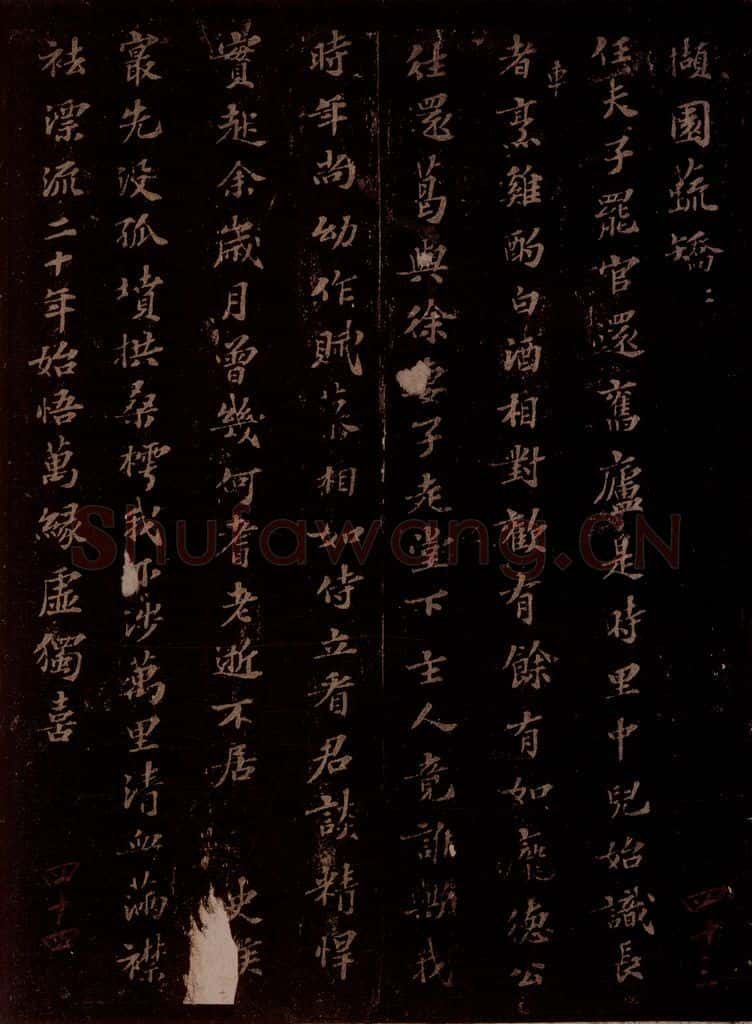 擷園蔬矯〻
任夫子罷官還舊廬是時里中兒始識長
者車烹雞酌白酒相對歡有餘有如龐德公
往還葛與徐妻子走堂下主人竟誰歟我
時年尚幼作賦慕相如侍立看君談精悍
實起余歲月曾幾何耆老逝不居 史侯
最先沒孤墳拱桑樗我亦涉萬里清血滿襟
袪漂流二十年始悟萬緣虛獨喜
四十三
四十四
Shufawang.CN